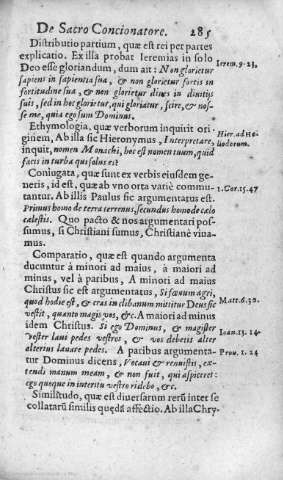 De Sacro Concionatore. 285
Distributio partium, quæ est rei per partes
explicatio. Ex illa probat Ieremias in solo
Deo esse gloriandum, dum ait: Non glorietur
Ierem. 9. 23,
sapiens in sapientia sua, & non glorietur fortis in
fortitudine sua, & non glorietur diues in diuitijs
suis, sed in hoc glorietur, qui gloriatur, scire, & nos-
se me, quia ego sum Dominus.
Ethymologia, quæ verborum inquirit ori-
ginem, Ab illa sic Hieronymus, Interpretare,
Hier. ad He-
liodorum.
inquit, nomen Monachi, hoc est nomen tuum, quid
facis in turba qui solus es?
Coniugata, quæ sunt ex verbis eiusdem ge-
neris, id est, quæ ab vno orta variè commu-
tantur. Ab illis Paulus sic argumentatus est.
1. Cor. 15. 47
Primus homo de terra terrenus, secundus homo de cælo
cælestis. Quo pacto & nos argumentari pos-
sumus, si Christiani sumus, Christianè viua-
mus.
Comparatio, quæ est quando argumenta
ducuntur à minori ad maius, à maiori ad
minus, vel à paribus, A minori ad maius
Christus sic est argumentatus, Si fœnum agri,
quod hodie est, & cras in clibanum mittitur Deus sic
Matt. 6. 30.
vestit, quanto magis vos, &c. A maiori ad minus
idem Christus. Si ego Dominus, & magister
vester laui pedes vestros, & vos debetis alter
Ioan. 13. 14.
alterius lauare pedes. A paribus argumenta-
tur Dominus dicens, Vocaui & renuistis, ex-
Prou. 1. 24
tendi manum meam, & non fuit, qui aspiceret:
ego quoque in interitu vestro ridebo, &c.
Similitudo, quæ est diuersarum rerū inter se
collatarū similis quędā affectio. Ab illa Chry-